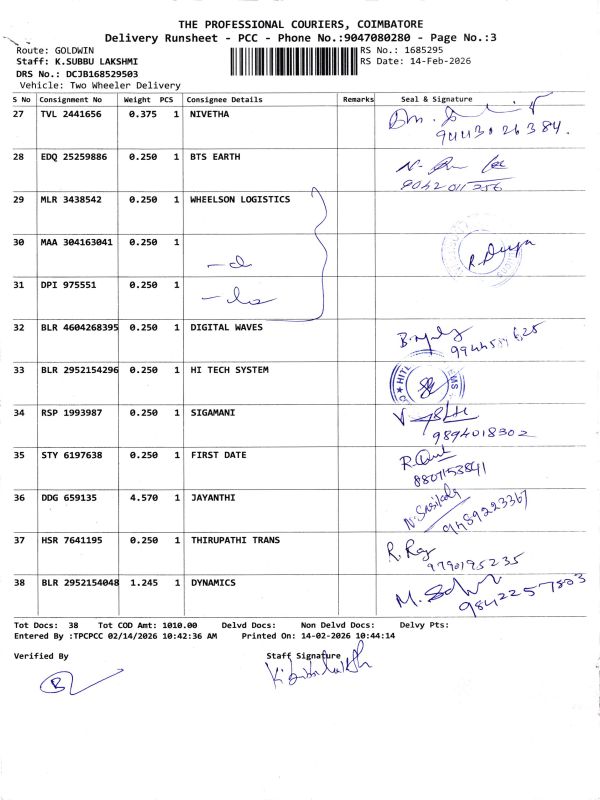 THE PROFESSIONAL COURIERS, COIMBATORE
Delivery Runsheet - PCC - Phone No.:9047080280 - Page No.:3
Route: GOLDWIN
RS No.: 1685295
Staff: K.SUBBU LAKSHMI
RS Date: 14-Feb-2026
DRS No.: DCJB168529503
Vehicle: Two Wheeler Delivery
S No Consignment No Weight PCS Consignee Details Remarks Seal & Signature
27 TVL 2441656 0.375 1 NIVETHA
9443026384.
28 EDQ 25259886 0.250 1 BTS EARTH
9042011256
29 MLR 3438542 0.250 1 WHEELSON LOGISTICS
30 MAA 304163041 0.250 1
31 DPI 975551 0.250 1
32 BLR 4604268395 0.250 1 DIGITAL WAVES
33 BLR 2952154296 0.250 1 HI TECH SYSTEM
34 RSP 1993987 0.250 1 SIGAMANI
9894018302
35 STY 6197638 0.250 1 FIRST DATE
8807153841
36 DDG 659135 4.570 1 JAYANTHI
N. Sasikala
9489223367
37 HSR 7641195 0.250 1 THIRUPATHI TRANS
R. Raj
9790195235
38 BLR 2952154048 1.245 1 DYNAMICS
9842257803
Tot Docs: 38 Tot COD Amt: 1010.00 Delvd Docs: Non Delvd Docs: Delvy Pts:
Entered By :TPCPCC 02/14/2026 10:42:36 AM Printed On: 14-02-2026 10:44:14
Verified By Staff Signature